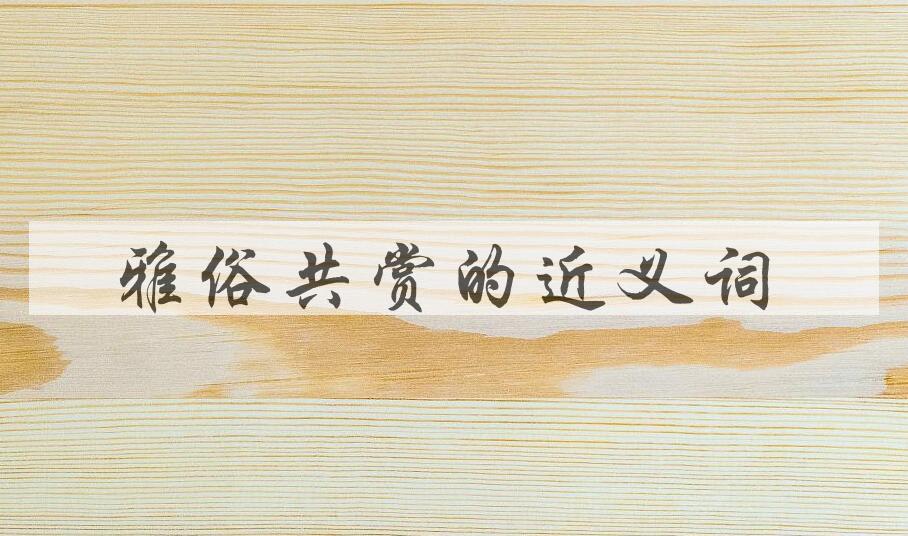 雅俗共赏的近义词